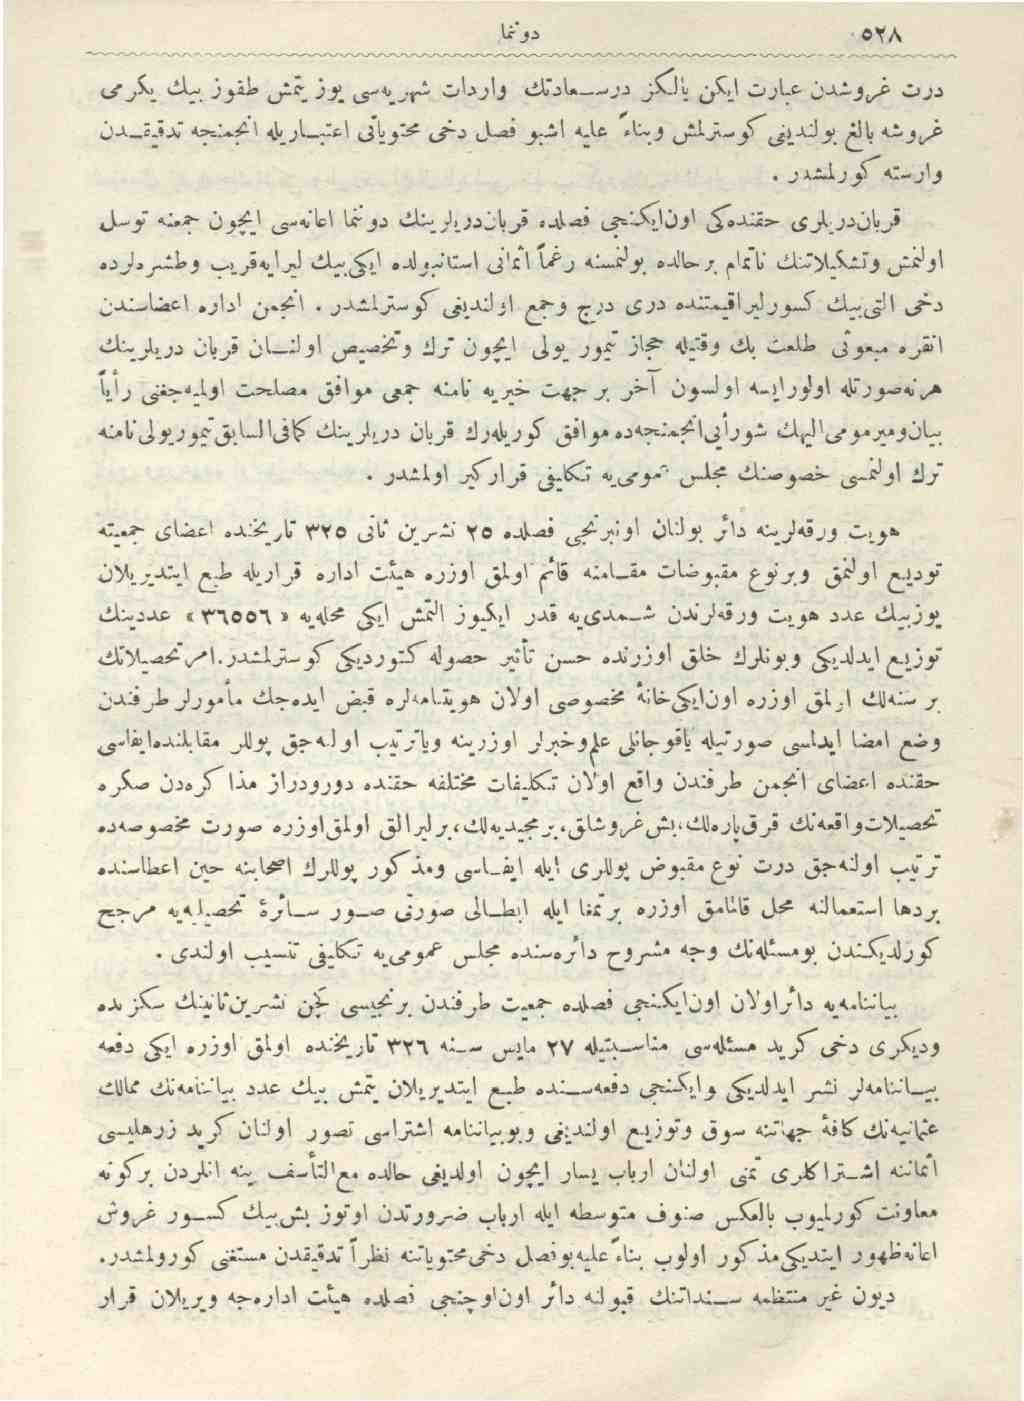 ٥٢٨
دوننما
درت غروشدن عبارت ایکن یالکز درسعادتك واردات شهریه‌سی یوز یتمش طقوز بیك یکرمی
غروشه بالغ بولندیغی کوسترلمش وبناءً علیه اشبو فصل دخی محتویاتی اعتباریله انجمنجه تدقیقدن
وارسته کورلمشدر .
قربان‌دریلری حقنده‌کی اون‌ایکنجی فصلده قربان‌دریلرینك دوننما اعانه‌سی ایچون جمعنه توسل
اولنمش وتشکیلاتنك ناتمام بر حالده بولنمسنه رغماً اثمانی استانبولده ایکی‌بیك لیرایه‌قریب وطشره‌لرده
دخی التی‌بیك کسورلیراقیمتنده دری درج وجمع اولندیغی کوسترلمشدر . انجمن اداره اعضاسندن
انقره مبعوثی طلعت بك وقتیله حجاز تیمور یولی ایچون ترك وتخصیص اولنان قربان دریلرینك
هرنه‌صورتله اولورایسه اولسون آخر بر جهت خیریه نامنه جمعی موافق مصلحت اولمیه‌جغنی رأیاً
بیان‌ومیرمومی‌الیهك شورأیی‌انجمنجه‌ده موافق کوریله‌رك قربان دریلرینك کمافی‌السابق‌تیموریولی‌نامنه
ترك اولنمسی خصوصنك مجلس عمومی‌یه تکلیفی قرارکیر اولمشدر .
هویت ورقه‌لرینه دائر بولنان اونبرنجی فصلده ٢٥ تشرین ثانی ٣٢٥ تاریخنده اعضای جمعیته
تودیع اولنمق وبرنوع مقبوضات مقامنه قائم اولمق اوزره هیئت اداره قراریله طبع ایتدیریلان
یوزبیك عدد هویت ورقه‌لرندن شمدی‌یه قدر ایکیوز التمش ایکی محله‌یه « ٣٦٥٥٦ » عددینك
توزیع ایدلدیکی وبونلرك خلق اوزرنده حسن تأثیر حصوله کتوردیکی کوسترلمشدر.امرتحصیلاتك
بر سنه‌لك اولمق اوزره اون‌ایکی‌خانهٔ مخصوصی اولان هویتنامه‌لره قبض ایده‌جك مأمورلر طرفندن
وضع امضا ایدلسی صورتیله یاقوجانلی علم‌وخبرلر اوزرینه ویاترتیب اولنه‌جق پوللر مقابلنده‌ایفاسی
حقنده اعضای انجمن طرفندن واقع اولان تکلیفات مختلفه حقنده دورودراز مذاکره‌دن صکره
تحصیلات‌واقعه‌نك قرق‌پاره‌لك،بش‌غروشلق،برمجیدیه‌لك،برلیرالق اولمق‌اوزره صورت مخصوصه‌ده
ترتیب اولنه‌جق درت نوع مقبوض پوللری ایله ایفاسی ومذکور پوللرك اصحابنه حین اعطاسنده
بردها استعمالنه محل قالمامق اوزره برتمغا ایله ابطالی صورتی صور سائرهٔ تحصیلیه‌یه مرجح
کورلدیکندن بومسئله‌نك وجه مشروح دائره‌سنده مجلس عمومی‌یه تکلیفی تنسیب اولندی .
بیاننامه‌یه دائراولان اون‌ایکنجی فصلده جمعیت طرفندن برنجیسی کچن تشرین‌ثانینك سکزنده
ودیکری دخی کرید مسئله‌سی مناسبتیله ٢٧ مایس سنه ٣٢٦ تاریخنده اولمق اوزره ایکی دفعه
بیاننامه‌لر نشر ایدلدیکی وایکنجی دفعه‌سنده طبع ایتدیریلان یتمش بیك عدد بیاننامه‌نك ممالك
عثمانیه‌نك کافهٔ جهاتنه سوق وتوزیع اولندیغی وبوبیاننامه اشتراسی تصور اولنان کرید زرهلیسی
اثماننه اشتراکلری تمنی اولنان ارباب یسار ایچون اولدیغی حالده مع‌التأسف ینه انلردن برکونه
معاونت کورلمیوب بالعکس صنوف متوسطه ایله ارباب ضرورتدن اوتوز بش‌بیك کسور غروش
اعانه‌ظهور ایتدیکی‌مذکور اولوب بناءً علیه‌بوفصل دخی‌محتویاتنه نظراً تدقیقدن مستغنی کورولمشدر.
دیون غیر منتظمه سنداتنك قبولنه دائر اون‌اوچنجی فصلده هیئت اداره‌جه ویریلان قرار